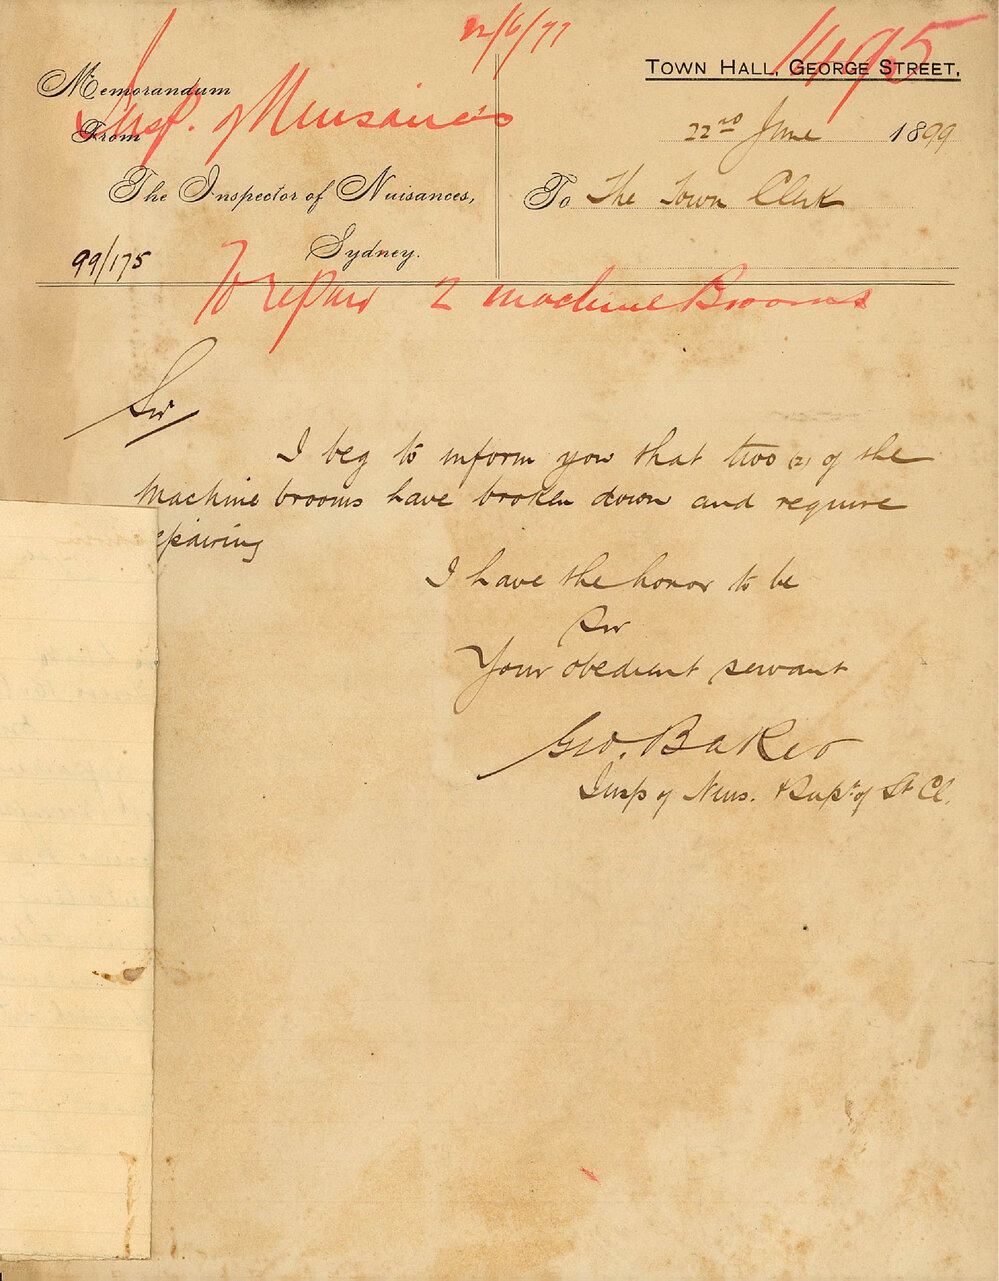 22/6/99
1495
TOWN HALL, GEORGE STREET,
Memorandum
From
Insp. of Nuisances
22nd June 1899
The Inspector of Nuisances,
To The Town Clerk
99/175
Sydney.
To repair 2 machine Brooms
Sir
I beg to inform you that two (2) of the
Machine brooms have broken down and require
epairing
I have the honor to be
Sir
Your obedient servant
Geo. Baker
Insp of Nuis. & Supt of St Cl.